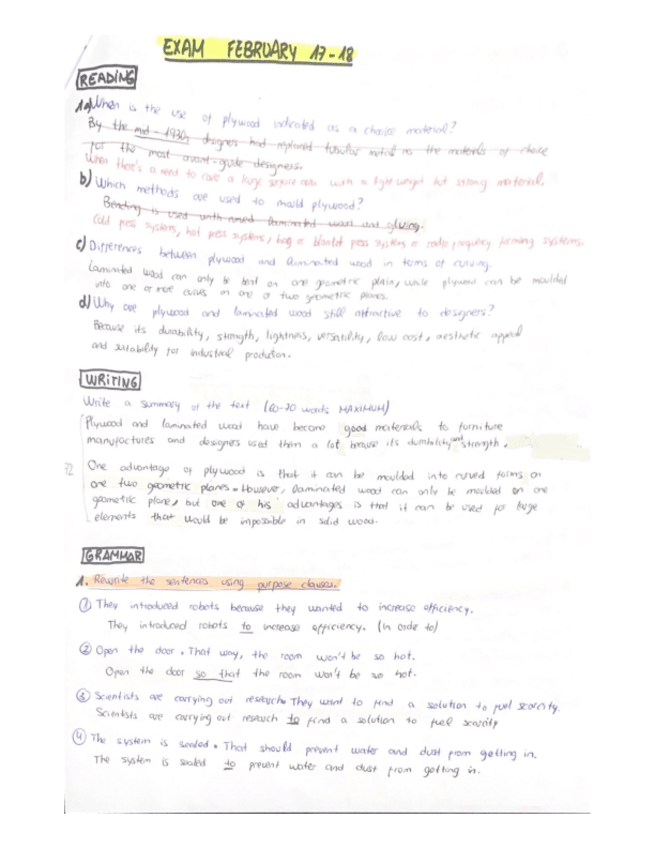 EXAM FEBRUARY 17-18
READING
1a) When is the use of plywood indicated as a choice material?
By the mid-1930s designers had replaced tubular metal as the materials of choice
for the most avant-garde designers.
When there's a need to cover a huge surface area with a light weight but strong material.
b) Which methods are used to mould plywood?
Bending is used with curved laminated wood and gluing.
Cold press systems, hot press systems, bag or blanket press systems or radio frequency forming systems.
c) Differences between plywood and laminated wood in terms of curving.
Laminated wood can only be bent on one geometric plain, while plywood can be moulded
into one or more curves on one or two geometric planes.
d) Why are plywood and laminated wood still attractive to designers?
Because its durability, strength, lightness, versatility, low cost, aesthetic appeal
and suitability for industrial production.
WRITING
Write a summary of the text (60-70 words MAXIMUM)
Plywood and laminated wood have become good materials to furniture
manufactures and designers used them a lot because its durability and strength.
72 One advantage of plywood is that it can be moulded into curved forms on
one two geometric planes. However, laminated wood can only be moulded on one
geometric plane, but one of his advantages is that it can be used for large
elements that would be impossible in solid wood.
GRAMMAR
1. Rewrite the sentences using purpose clauses.
① They introduced robots because they wanted to increase efficiency.
They introduced robots to increase efficiency. (In order to)
② Open the door. That way, the room won't be so hot.
Open the door so that the room won't be so hot.
③ Scientists are carrying out research. They want to find a solution to fuel scarcity.
Scientists are carrying out research to find a solution to fuel scarcity
④ The system is sealed. That should prevent water and dust from getting in.
The system is sealed to prevent water and dust from getting in.